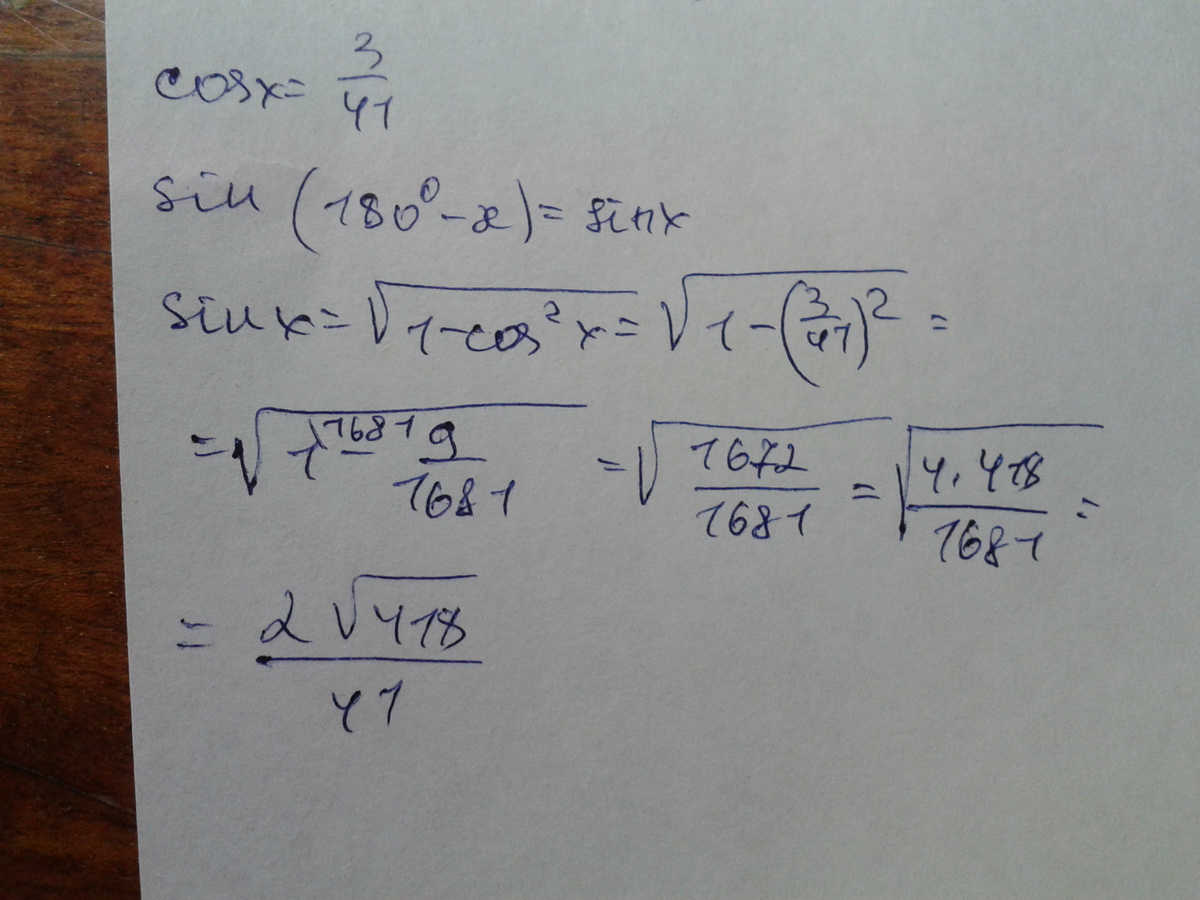 cosx = 3/41
sin (180° - x) = sinx
sin x = √(1 - cos²x) = √(1 - (3/41)²) =
= √(1^1681 - 9/1681) = √(1672/1681) = √(4·418/1681) =
= 2√418/41